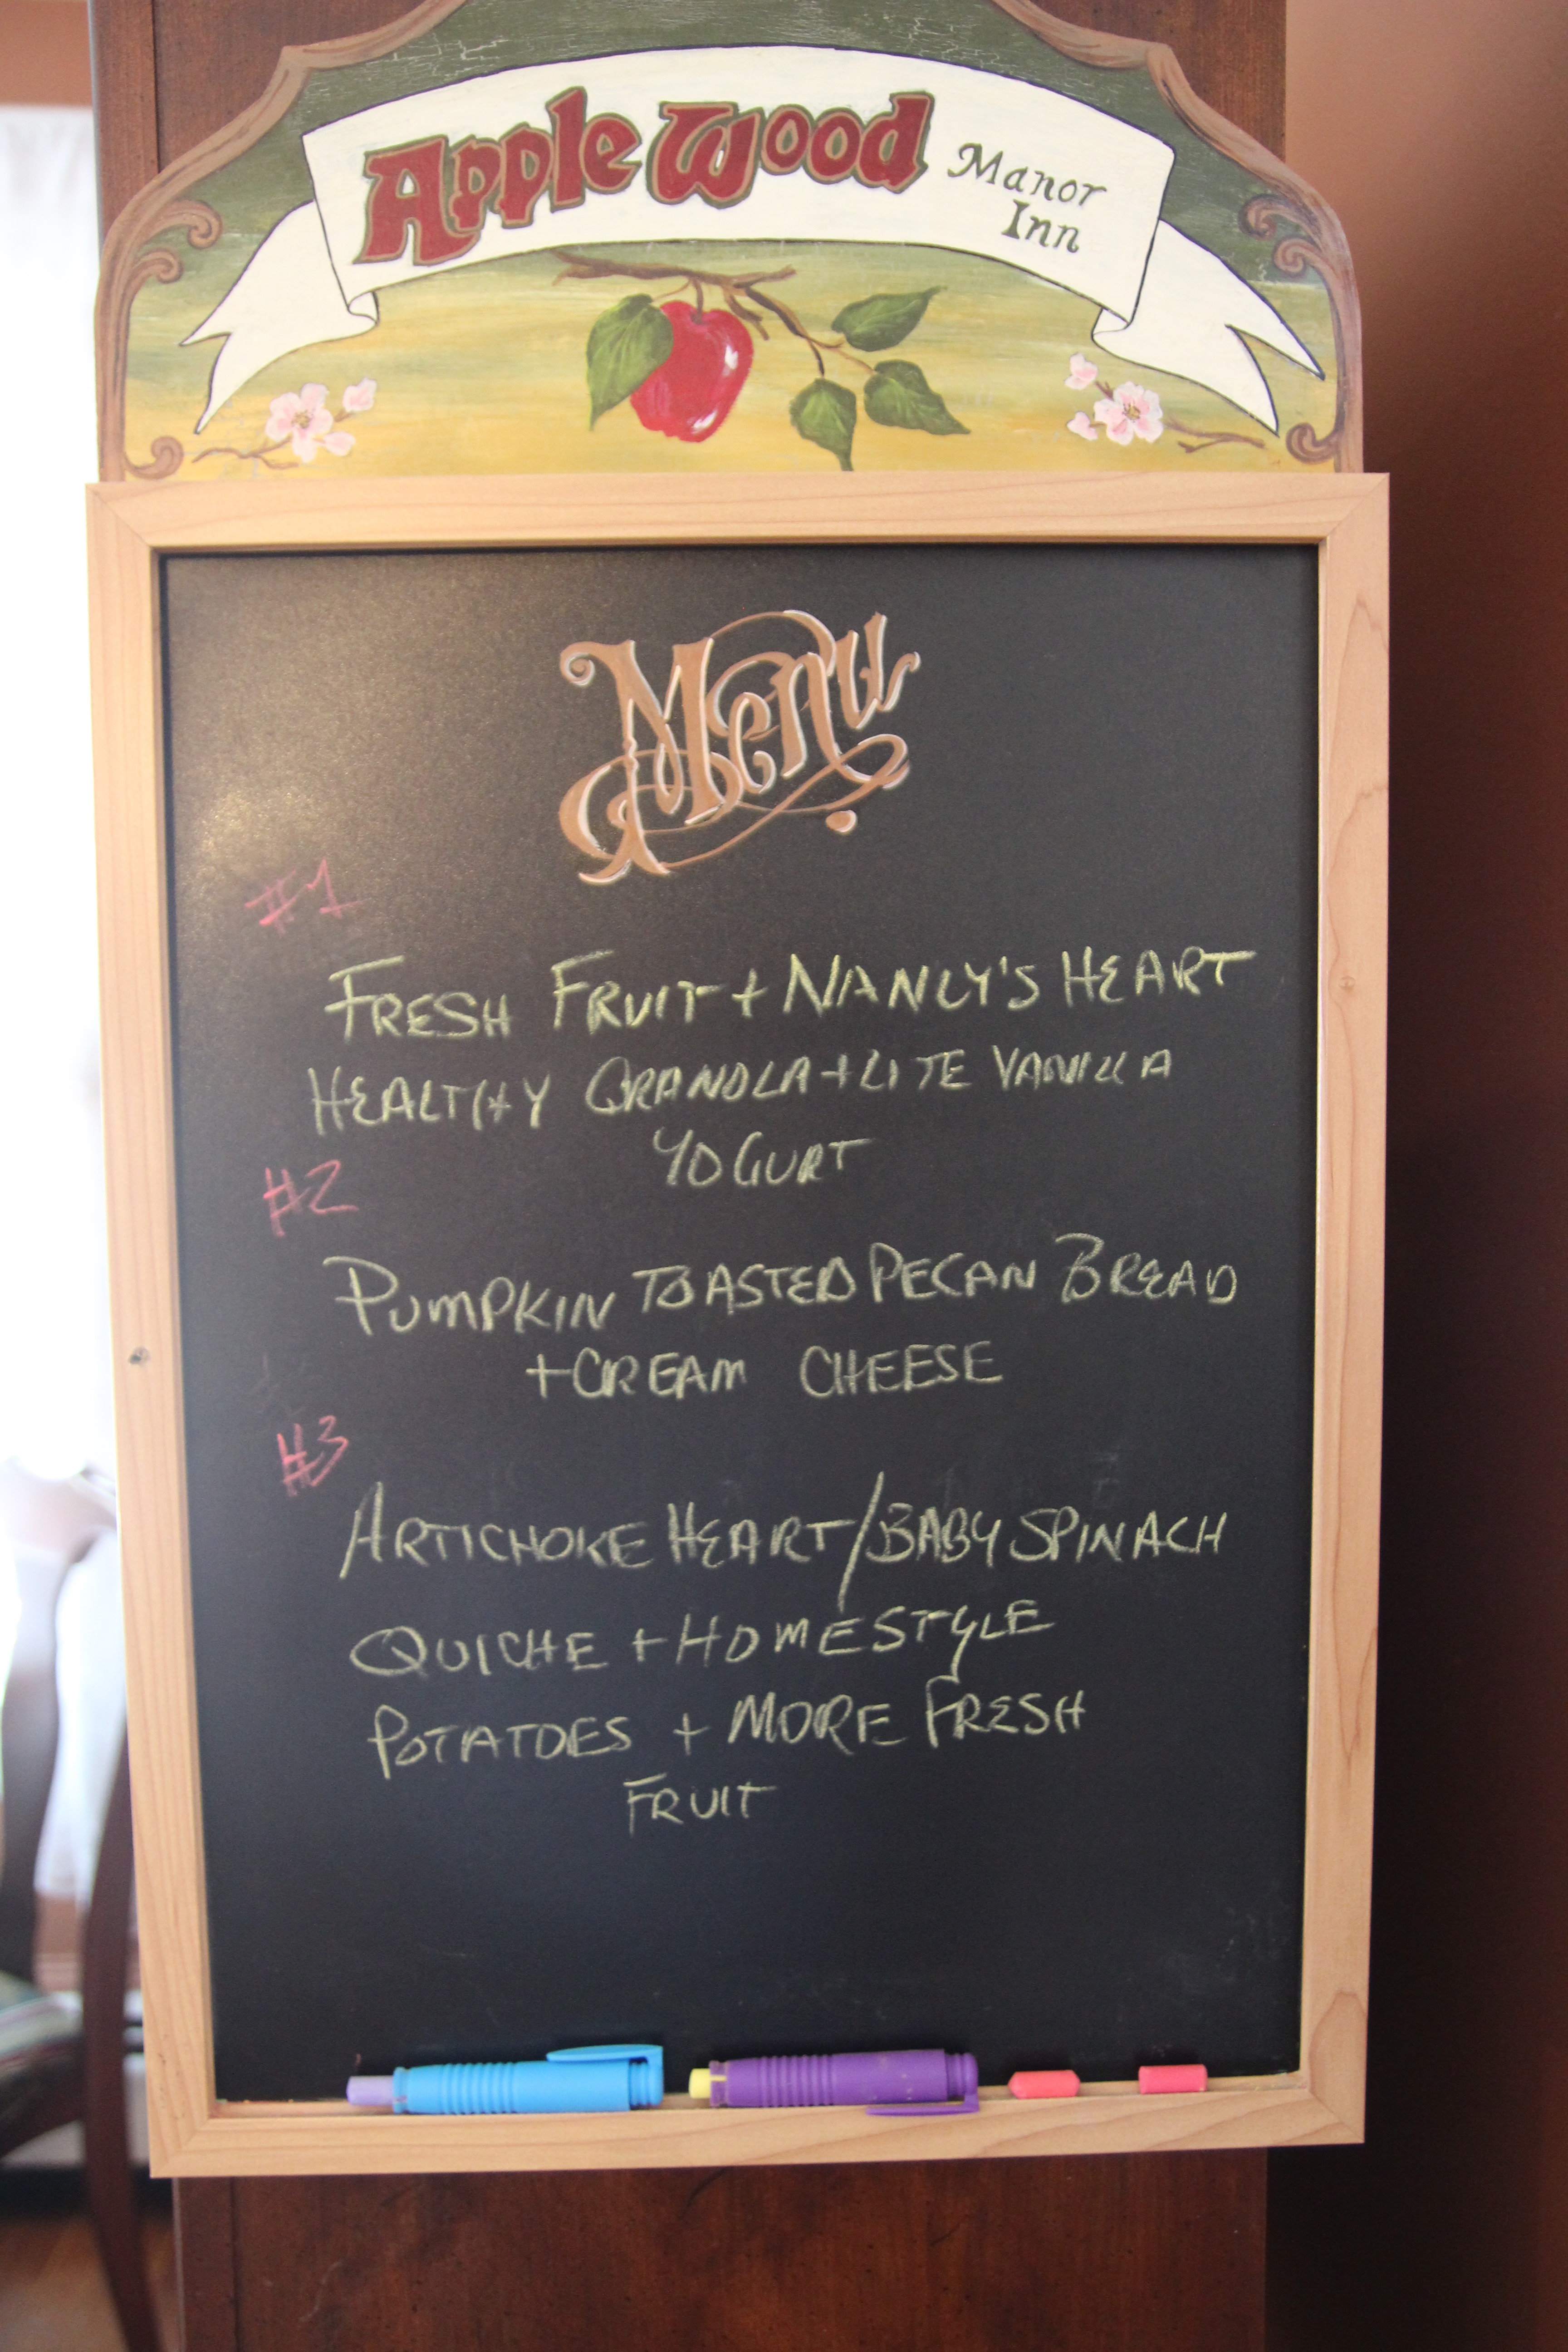 Apple Wood Manor
Inn
Menu
#1
FRESH FRUIT + NANCY'S HEART
HEALTHY GRANOLA + LITE VANILLA
YOGURT
#2
PUMPKIN TOASTED PECAN BREAD
+ CREAM CHEESE
#3
ARTICHOKE HEART/BABY SPINACH
QUICHE + HOMESTYLE
POTATOES + MORE FRESH
FRUIT